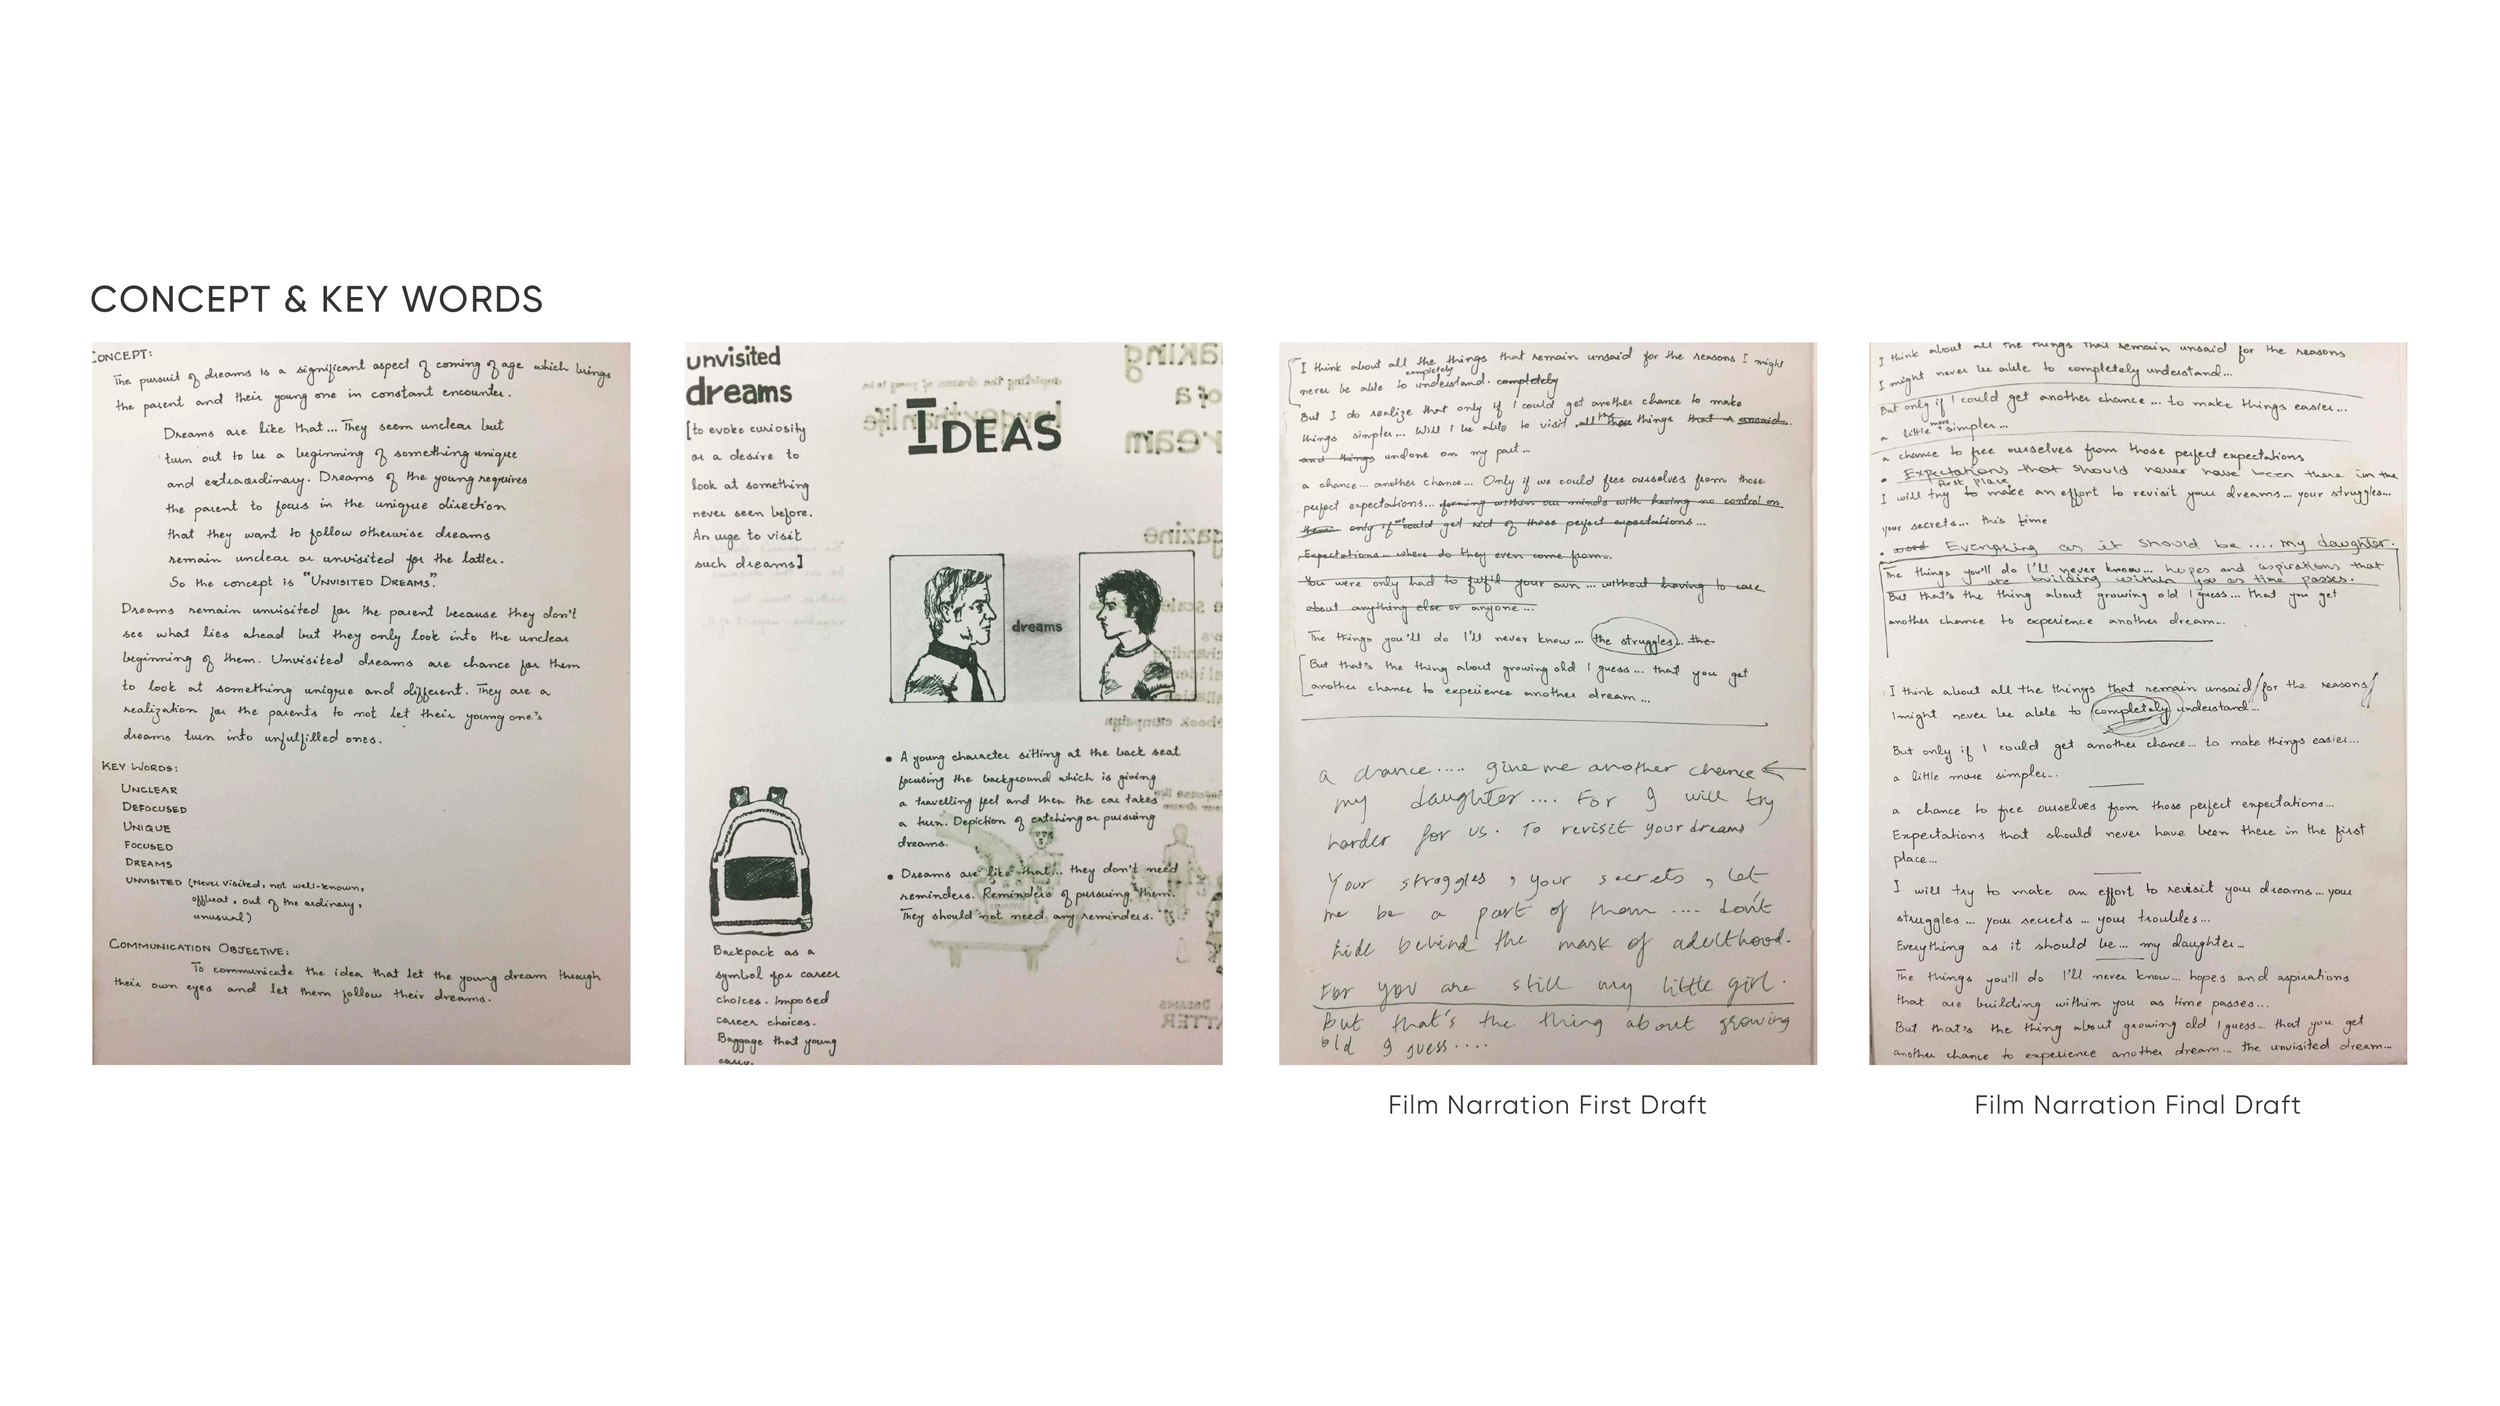 CONCEPT & KEY WORDS
CONCEPT:
The pursuit of dreams is a significant aspect of coming of age which brings
the parent and their young one in constant encounter.
Dreams are like that... They seem unclear but
turn out to be a beginning of something unique
and extraordinary. Dreams of the young requires
the parent to focus in the unique direction
that they want to follow otherwise dreams
remain unclear or unvisited for the latter.
So the concept is "UNVISITED DREAMS".
Dreams remain unvisited for the parent because they don't
see what lies ahead but they only look into the unclear
beginning of them. Unvisited dreams are chance for them
to look at something unique and different. They are a
realization for the parents to not let their young one's
dreams turn into unfulfilled ones.
KEY WORDS:
UNCLEAR
DEFOCUSED
UNIQUE
FOCUSED
DREAMS
UNVISITED (Never visited, not well-known,
offbeat, out of the ordinary,
unusual)
COMMUNICATION OBJECTIVE:
To communicate the idea that let the young dream through
their own eyes and let them follow their dreams.
unvisited
dreams
[to evoke curiosity
or a desire to
look at something
never seen before.
An urge to visit
such dreams]
IDEAS
dreams
• A young character sitting at the back seat
focusing the background which is giving
a travelling feel and then the car takes
a turn. Depiction of catching or pursuing
dreams.
• Dreams are like that... they don't need
reminders. Reminders of pursuing them.
They should not need any reminders.
Backpack as a
symbol for career
choices. Imposed
career choices.
Baggage that young
carry.
I think about all the things that remain unsaid for the reasons I might
completely
never be able to understand. completely
But I do realize that only if I could get another chance to make
things simpler... Will I be able to visit all the those things that r unsaid.
and things undone on my part...
a chance... another chance... Only if we could free ourselves from those
perfect expectations... forming within our minds with having no control on
them. only if we could get rid of those perfect expectations...
Expectations... where do they even come from...
You were only had to fulfil your own... without having to care
about anything else or anyone...
The things you'll do I'll never know... the struggles... the
But that's the thing about growing old I guess... that you get
another chance to experience another dream...
a chance.... give me another chance ←
my daughter.... For I will try
harder for us. To revisit your dreams
Your struggles, your secrets, let
me be a part of them.... don't
hide behind the mask of adulthood.
For you are still my little girl.
But that's the thing about growing
old I guess....
Film Narration First Draft
I think about all the things that remain unsaid for the reasons
I might never be able to completely understand...
But only if I could get another chance... to make things easier...
a little more simpler...
a chance to free ourselves from those perfect expectations
• Expectations that should never have been there in the
first place
I will try to make an effort to revisit your dreams... your struggles...
your secrets... this time
• Everything as it should be.... my daughter.
The things you'll do I'll never know... hopes and aspirations that
are building within you as time passes.
But that's the thing about growing old I guess... that you get
another chance to experience another dream...
I think about all the things that remain unsaid/for the reasons/
I might never be able to completely understand...
But only if I could get another chance... to make things easier...
a little more simpler...
a chance to free ourselves from those perfect expectations...
Expectations that should never have been there in the first
place...
I will try to make an effort to revisit your dreams... your
struggles... your secrets... your troubles...
Everything as it should be... my daughter...
The things you'll do I'll never know... hopes and aspirations
that are building within you as time passes...
But that's the thing about growing old I guess... that you get
another chance to experience another dream... the unvisited dream...
Film Narration Final Draft